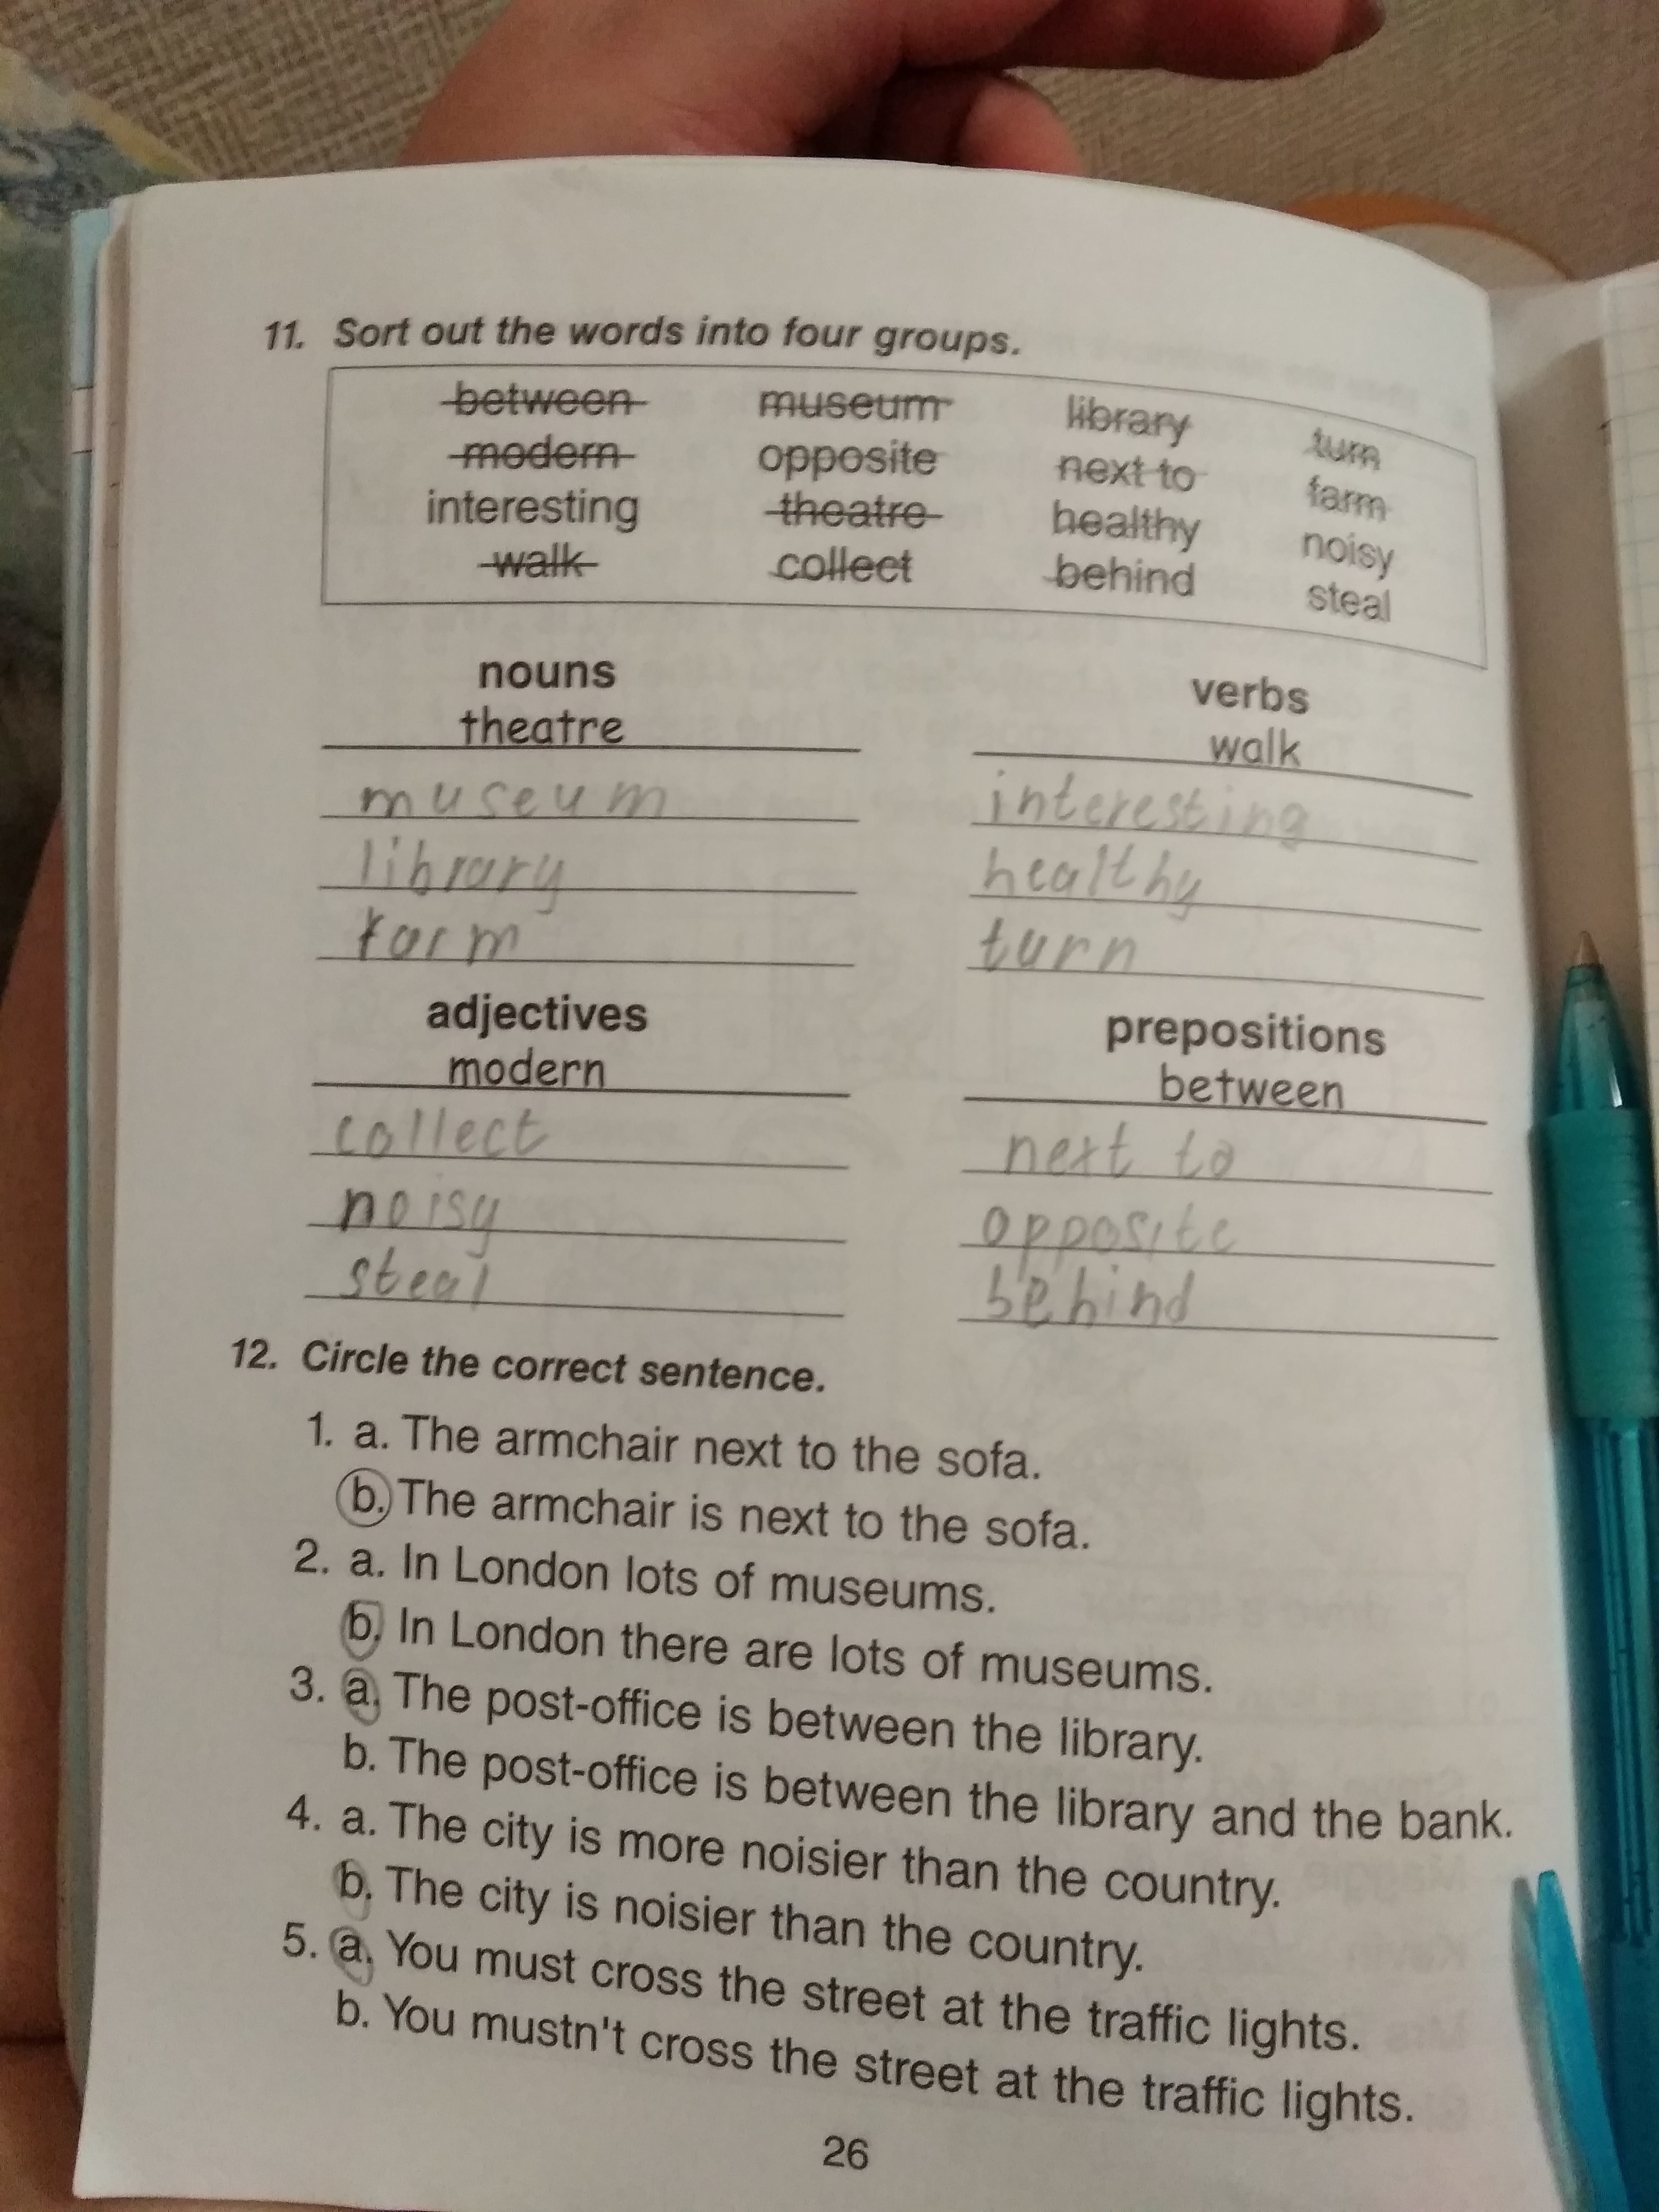 11. Sort out the words into four groups.
between museum library turn
modern opposite next to farm
interesting theatre healthy noisy
walk collect behind steal
nouns
theatre
museum
library
farm
verbs
walk
interesting
healthy
turn
adjectives
modern
collect
noisy
steal
prepositions
between
next to
opposite
behind
12. Circle the correct sentence.
1. a. The armchair next to the sofa.
b. The armchair is next to the sofa.
2. a. In London lots of museums.
b. In London there are lots of museums.
3. a. The post-office is between the library.
b. The post-office is between the library and the bank.
4. a. The city is more noisier than the country.
b. The city is noisier than the country.
5. a. You must cross the street at the traffic lights.
b. You mustn't cross the street at the traffic lights.
26